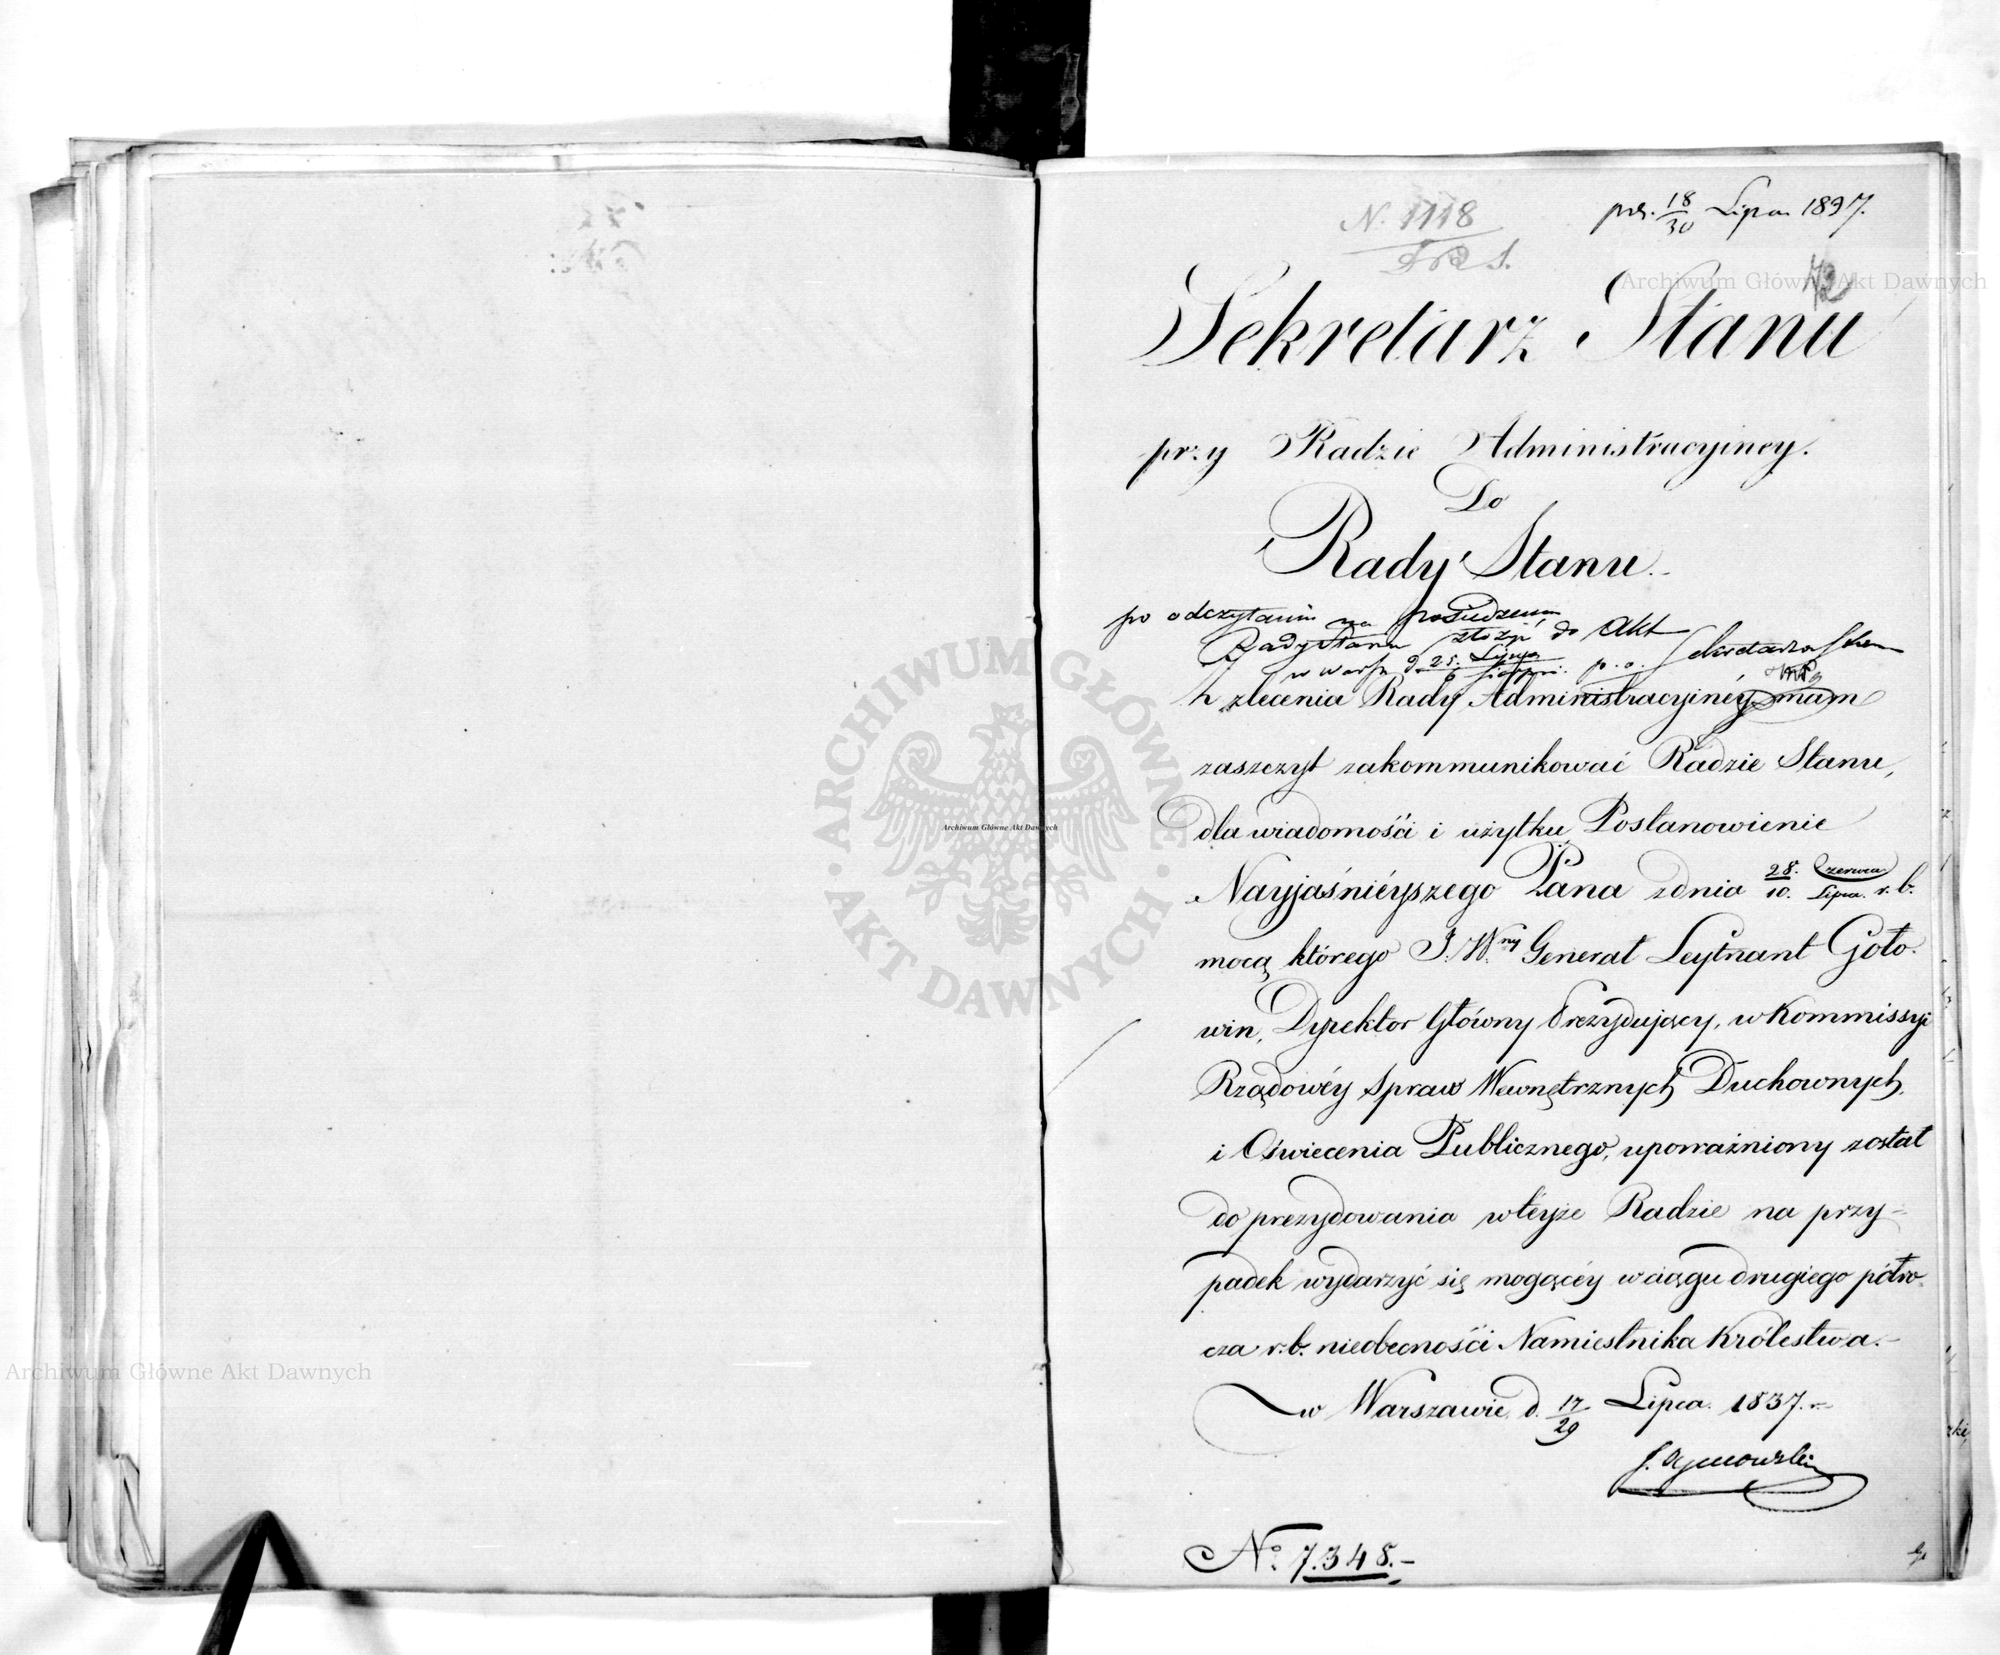 N. 1118
prs. 18/30 Lipca 1837.
72
Sekretarz Stanu
przy Radzie Administracyiney.
Do
Rady Stanu.
po odczytaniu na posiedzeniu
Rady Stanu złożyć do Akt
w Warsz. d. 25. Lipca / 6 Sierpni. p.o. Sekretarza Stanu
Z zlecenia Rady Administracyinéy mam
zaszczyt zakommunikować Radzie Stanu,
dla wiadomości i użytku, Postanowienie
Nayjaśniéyszego Pana zdnia 28. Czerwca / 10. Lipca. r. b.
mocą którego J. W.ny Generał Leytnant Goło-
win, Dyrektor Główny Prezydujący, w Kommissyi
Rządowéy Spraw Wewnętrznych Duchownych,
i Oświecenia Publicznego, upoważniony został
do prezydowania wteyże Radzie na przy-
padek wydarzyć się mogącéy w ciągu drugiego półro-
cza r. b. nieobecności Namiestnika Królestwa.-
w Warszawie d. 17/29 Lipca 1837.-
J. Tymowski
No. 7.348.-
Archiwum Główne Akt Dawnych
Archiwum Główne Akt Dawnych
Archiwum Główne Akt Dawnych
ARCHIWUM GŁÓWNE · AKT DAWNYCH ·